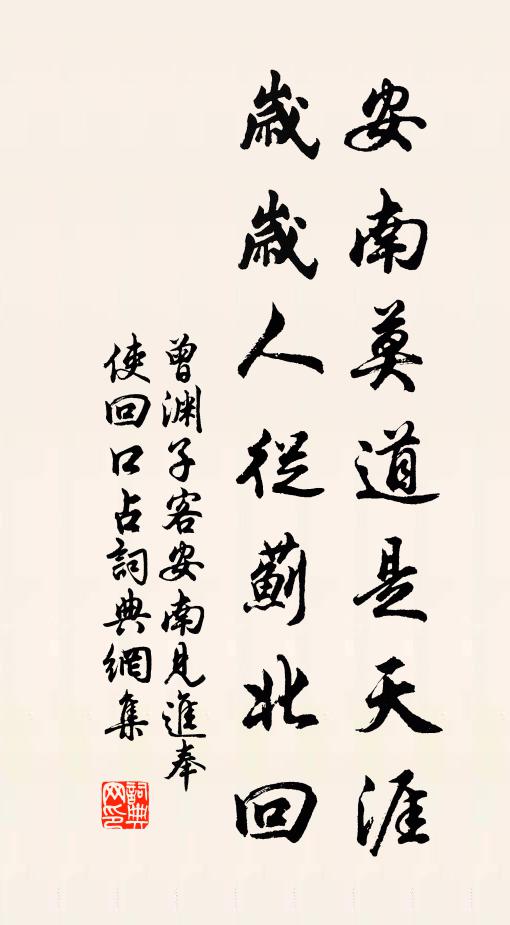 安南莫道是天涯
歲歲人從薊北回
曾淵子客安南見進奉
使回口占詞典網集
詞典
网印